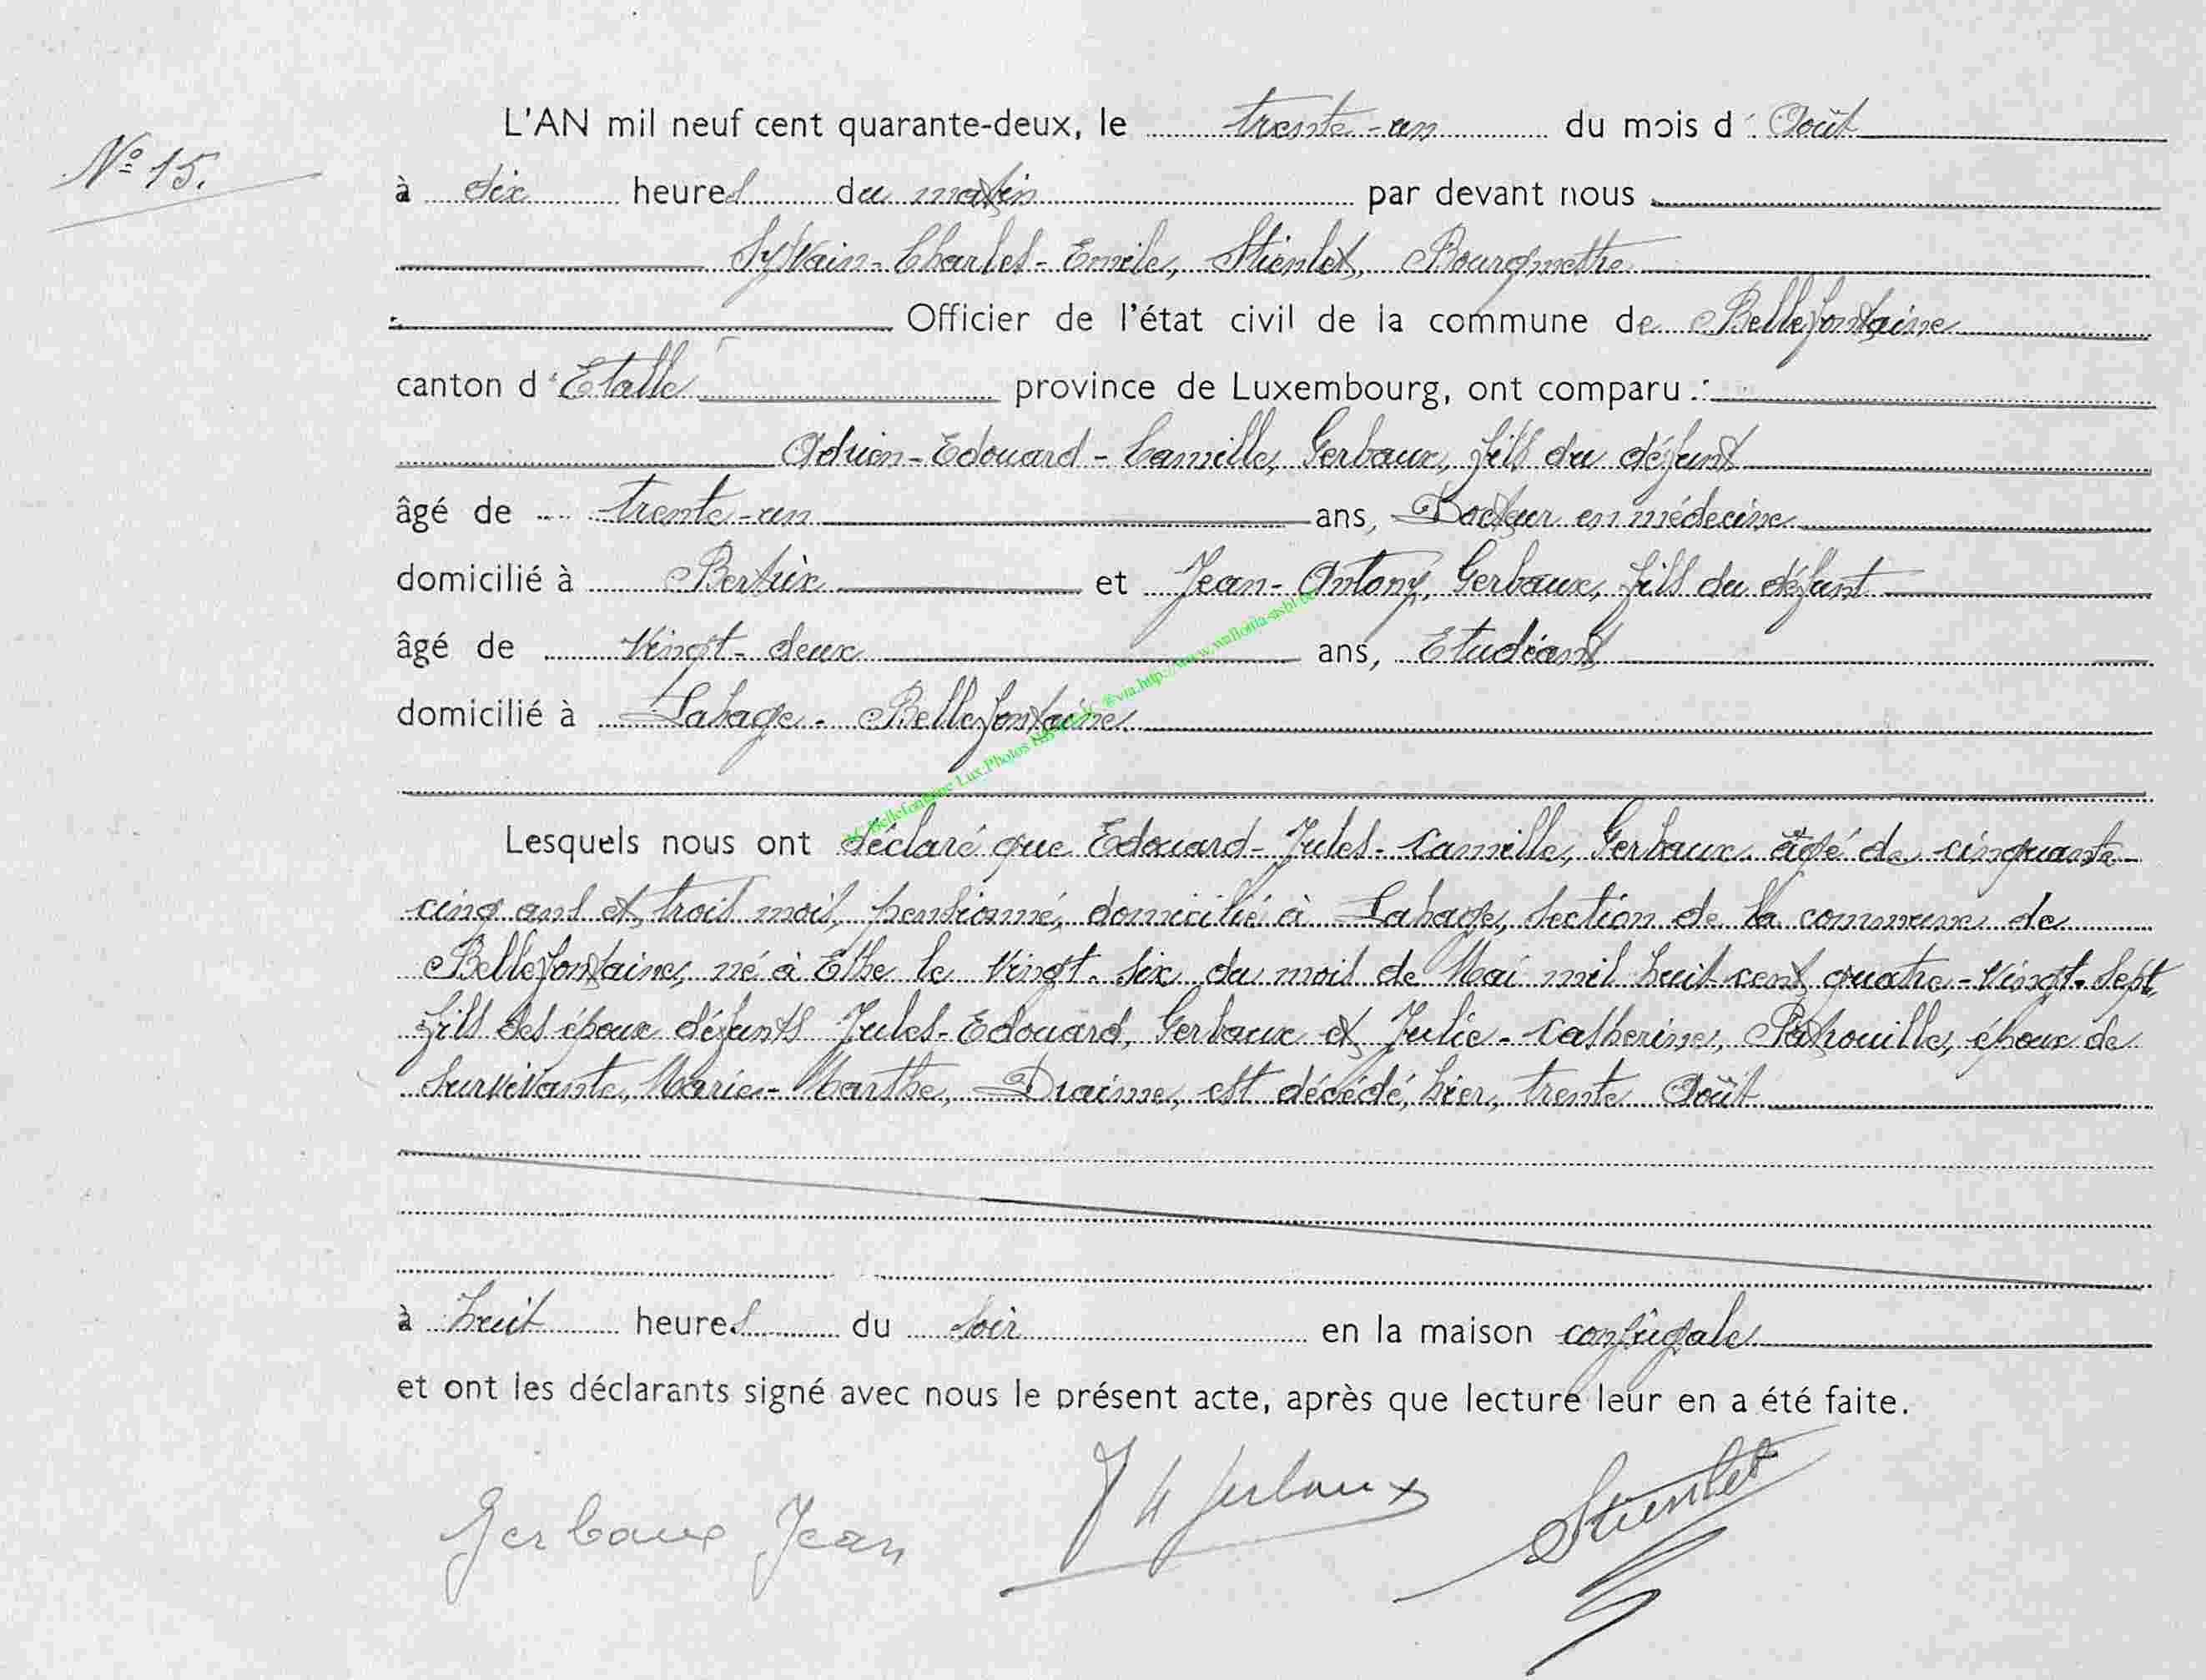 N° 15.
L'AN mil neuf cent quarante-deux, le trente-un du mois d' Août
à dix heures du matin par devant nous
Sylvain-Charles-Emile, Stienlet, Bourgmestre
Officier de l'état civil de la commune de Bellefontaine
canton d'Etalle province de Luxembourg, ont comparu :
Adrien-Edouard-Camille, Gerbaux, fils du défunt
âgé de trente-un ans, Docteur en médecine
domicilié à Bertrix et Jean-Antony, Gerbaux, fils du défunt
âgé de vingt-deux ans, Etudiant
domicilié à Lahage-Bellefontaine
Lesquels nous ont déclaré que Edouard-Jules-Camille, Gerbaux, âgé de cinquante-
cinq ans et trois mois, pensionné, domicilié à Lahage, section de la commune de
Bellefontaine, né à Ethe le vingt-six du mois de Mai mil huit cent quatre-vingt-sept,
fils des époux défunts Jules-Edouard, Gerbaux et Julie-Catherine, Patrouille, époux de
survivante, Marie-Marthe, Draime, est décédé, hier, trente Août
à huit heures du soir en la maison conjugale
et ont les déclarants signé avec nous le présent acte, après que lecture leur en a été faite.
Gerbaux Jean Gerbaux Stienlet